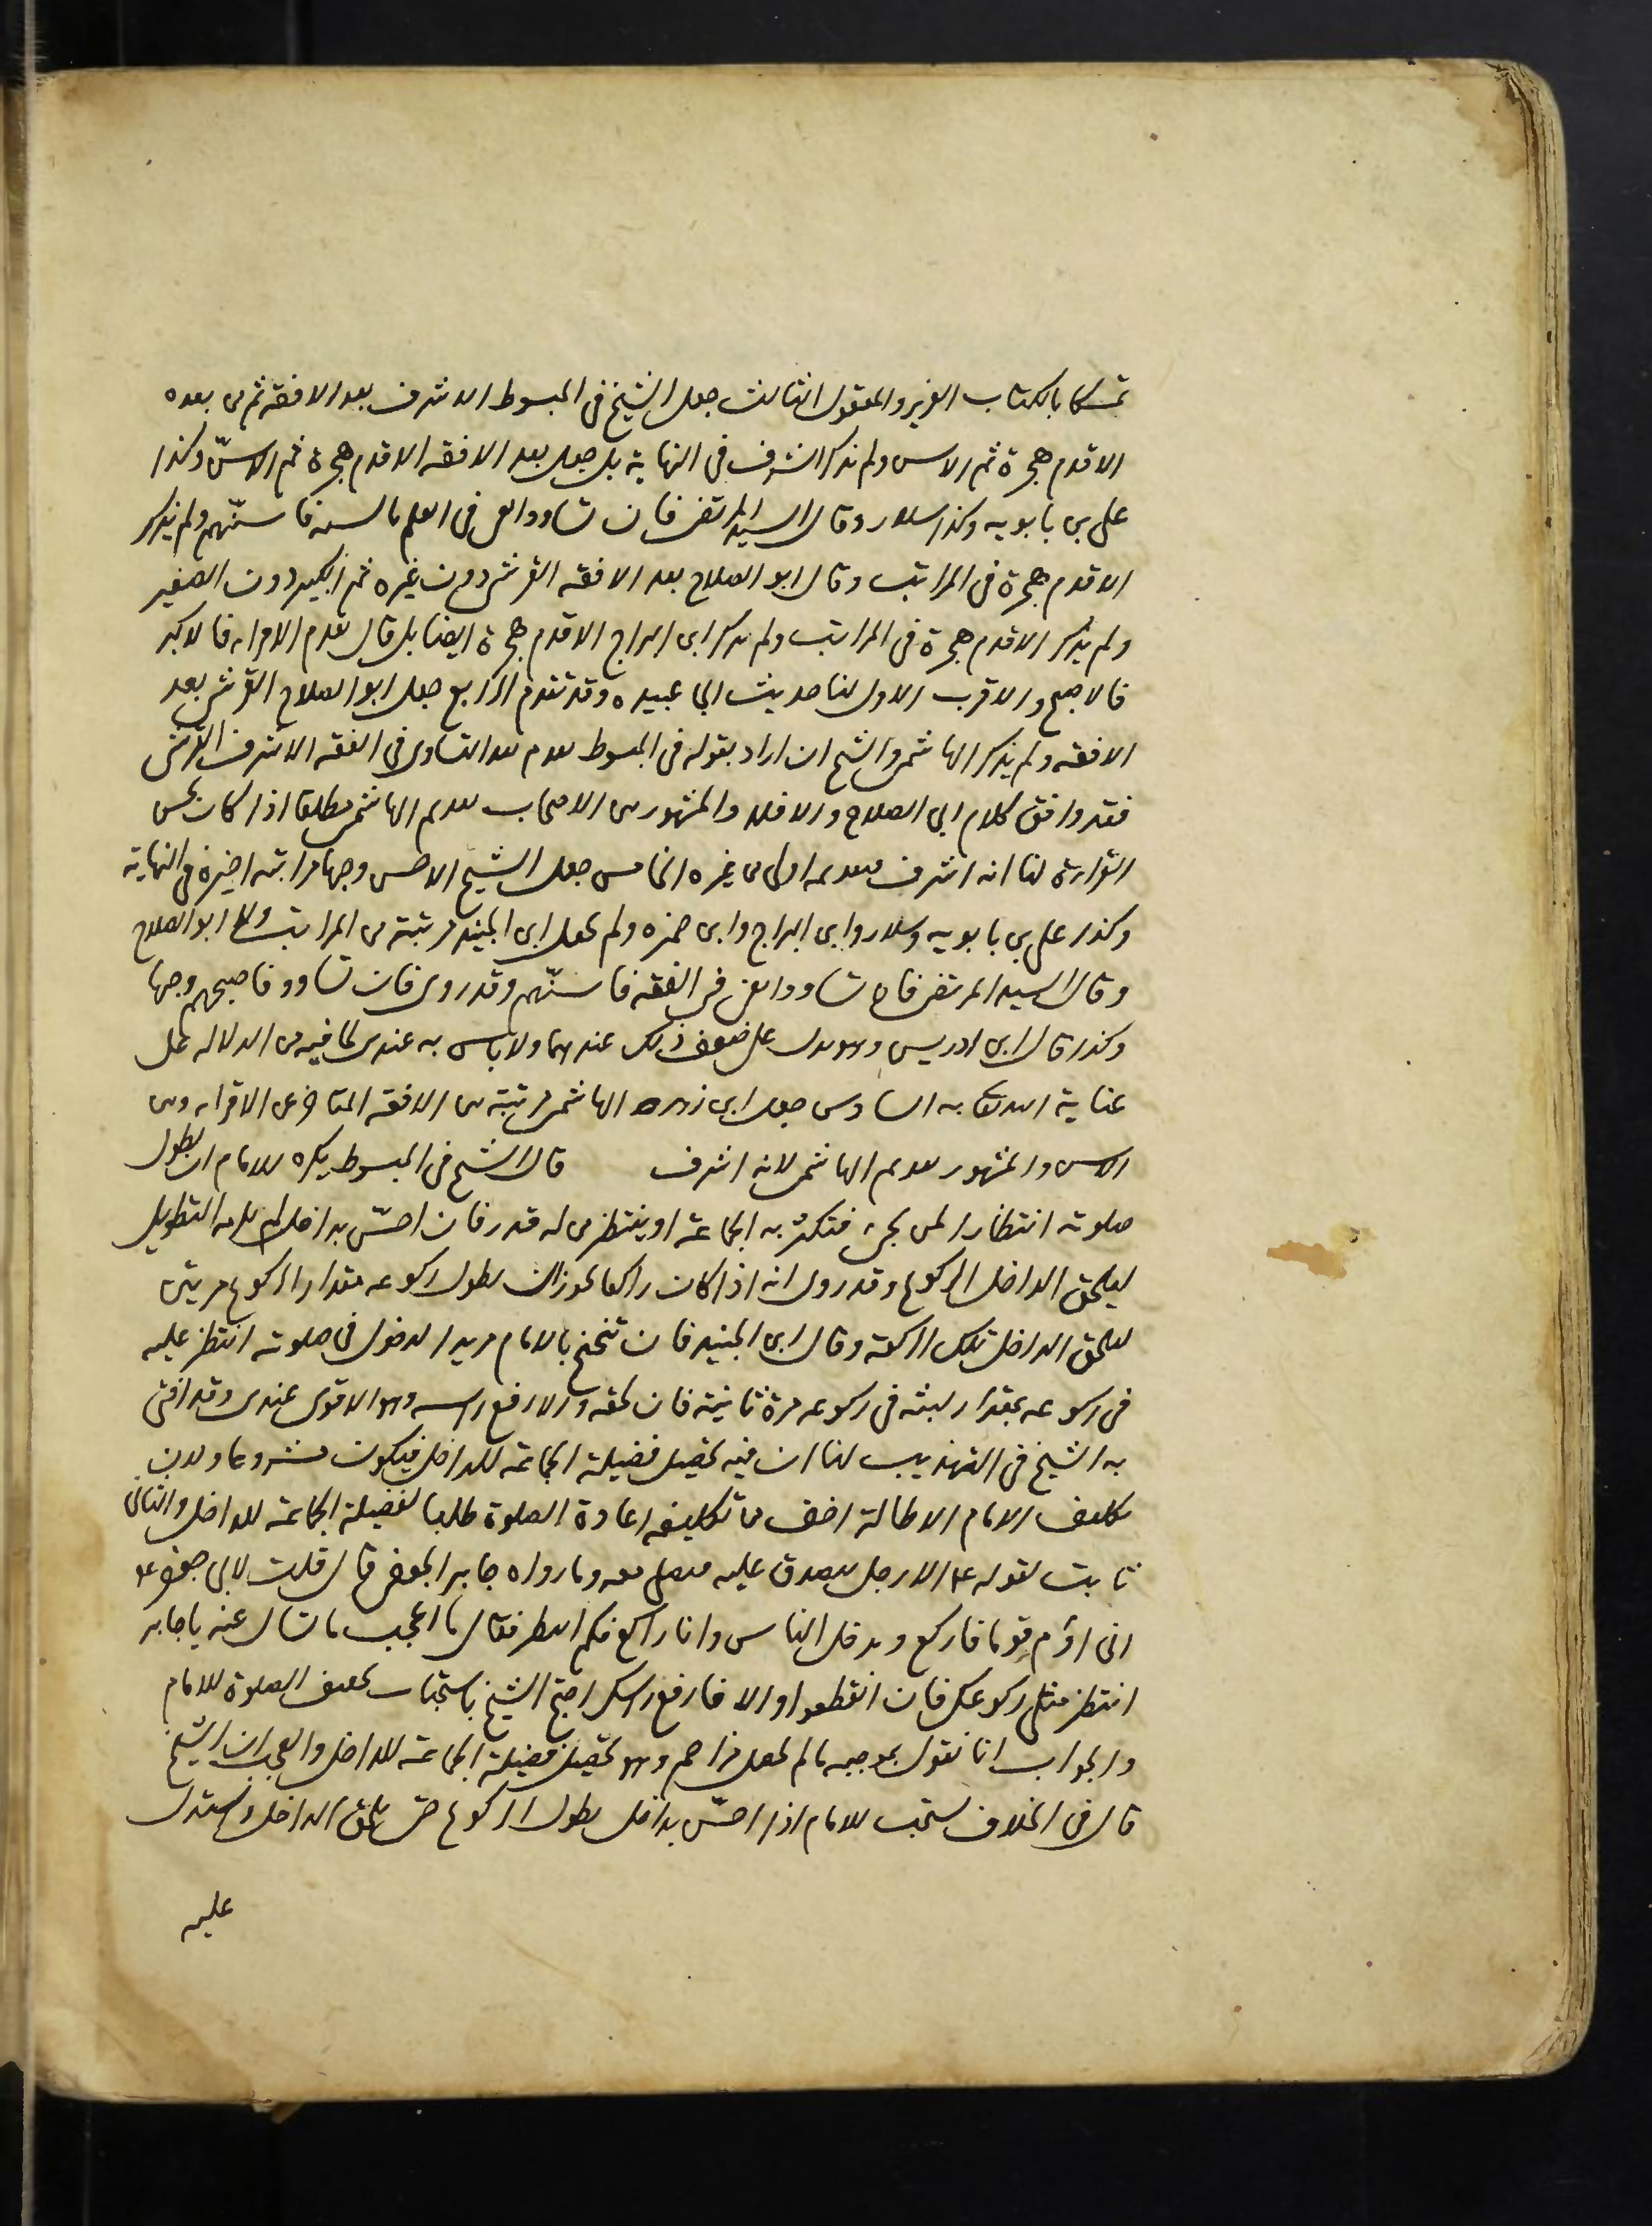 تمسكا بالكتاب العزيز والمعقول الثالث جعل الشيخ في المبسوط الاشرف بعد الافقه ثم من بعده
الاقدم هجرة ثم الاسن ولم يذكر الشرف في النهاية بل جعل بعد الافقه الاقدم هجرة ثم الاسنّ وكذا
علي بن بابويه وكذا سلار وقال السيد المرتضى فان تساووا في العلم بالسنه فاسنّهم ولم يذكر
الاقدم هجرة في المراتب وقال ابو الصلاح بعد الافقه القرشي دون غيره ثم الكبير دون الصغير
ولم يذكر الاقدم هجرة في المراتب ولم يذكر ابن البراج الاقدم هجرة ايضا بل قال يقدم الاقراء فالاكبر
فالاصبح والاقرب الاول لنا حديث ابي عبيده وقد تقدم الرابع جعل ابو الصلاح القرشي بعد
الافقه ولم يذكر الهاشمي والشيخ ان اراد بقوله في المبسوط يقدم بعد التساوي في الفقه الاشرف القرشي
فقد وافق كلام ابي الصلاح والا فلا والمشهور بين الاصحاب تقديم الهاشمي مطلقا اذا كان يحسن
القراءة لنا انه اشرف فتقديمه اولى من غيره الخامس جعل الشيخ الاحسن وجها مرتبه اخيرة في النهاية
وكذا علي بن بابويه وسلار وابن البراج وابن حمزه ولم يجعل ابن الجنيد مرتبة من المراتب ولا ابو الصلاح
وقال السيد المرتضى فان تساووا في الفقه فاسنّهم وقد روى فان تساووا فاصبحهم وجها
وكذا قال ابن ادريس وهو يدل على ضعف ذلك عندهما ولا باس به عندي لما فيه من الدلاله على
عناية الله تعالى به السادس جعل ابن زهره الهاشمي مرتبة بين الافقه المتاخر عن الاقراء وبين
الاسن والمشهور تقديم الهاشمي لانه اشرف قال الشيخ في المبسوط يكره للامام ان يطول
صلوته انتظارا لمن يجيء فتكثر به الجماعة او ينتظر من له قدر فان احسّ بداخل لم يلزمه التطويل
ليلحق الداخل الركوع وقد روى انه اذا كان راكعا يجوز ان يطول ركوعه مقدار الركوع مرتين
ليلحق الداخل تلك الركعة وقال ابن الجنيد فان تنحنح بالامام مريد الدخول في صلوته انتظر عليه
في ركوعه بمقدار لبثه في ركوعه مرة ثانية فان لحقه والا رفع راسه وهو الاقوى عندي وقد افتى
به الشيخ في التهذيب لنا ان فيه تحصيل فضيلة الجماعة للداخل فيكون مشروعا ولان
تكليف الامام الاطالة اخف من تكليفه اعادة الصلوة طلبا لفضيلة الجماعة للداخل والثاني
ثابت لقوله ع الا رجل يتصدق عليه فيصلي معه وما رواه جابر الجعفي قال قلت لابي جعفر ع
اني اؤم قوما فاركع ويدخل الناس وانا راكع فكم انتظر فقال ما اعجب ما تسال عنه يا جابر
انتظر مثلي ركوعك فان انقطعوا والا فارفع راسك احتج الشيخ باستحباب تخفيف الصلوة للامام
والجواب انا نقول بموجبه ما لم يحصل مزاحم وهو تحصيل فضيلة الجماعة للداخل والعجب ان الشيخ
قال في الخلاف يستحب للامام اذا احسّ بداخل يطول الركوع حتى يلحق الداخل واستدل
عليه